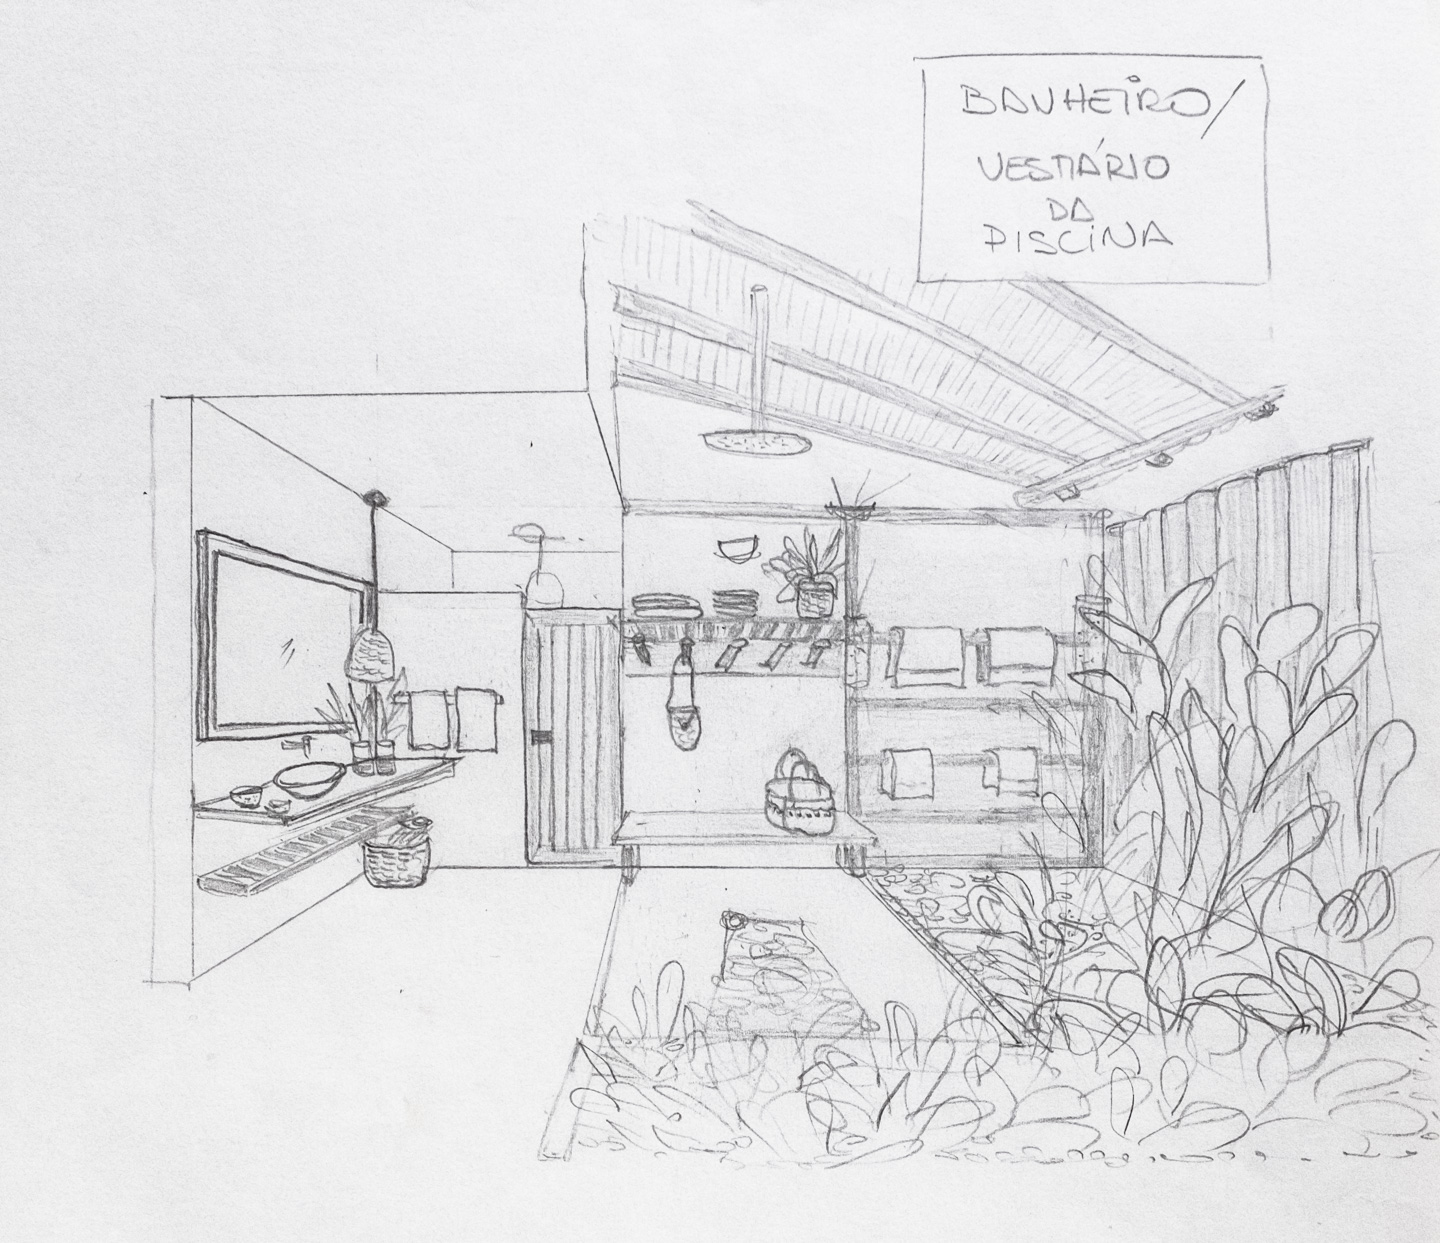 BANHEIRO/
VESTIÁRIO
DA
PISCINA